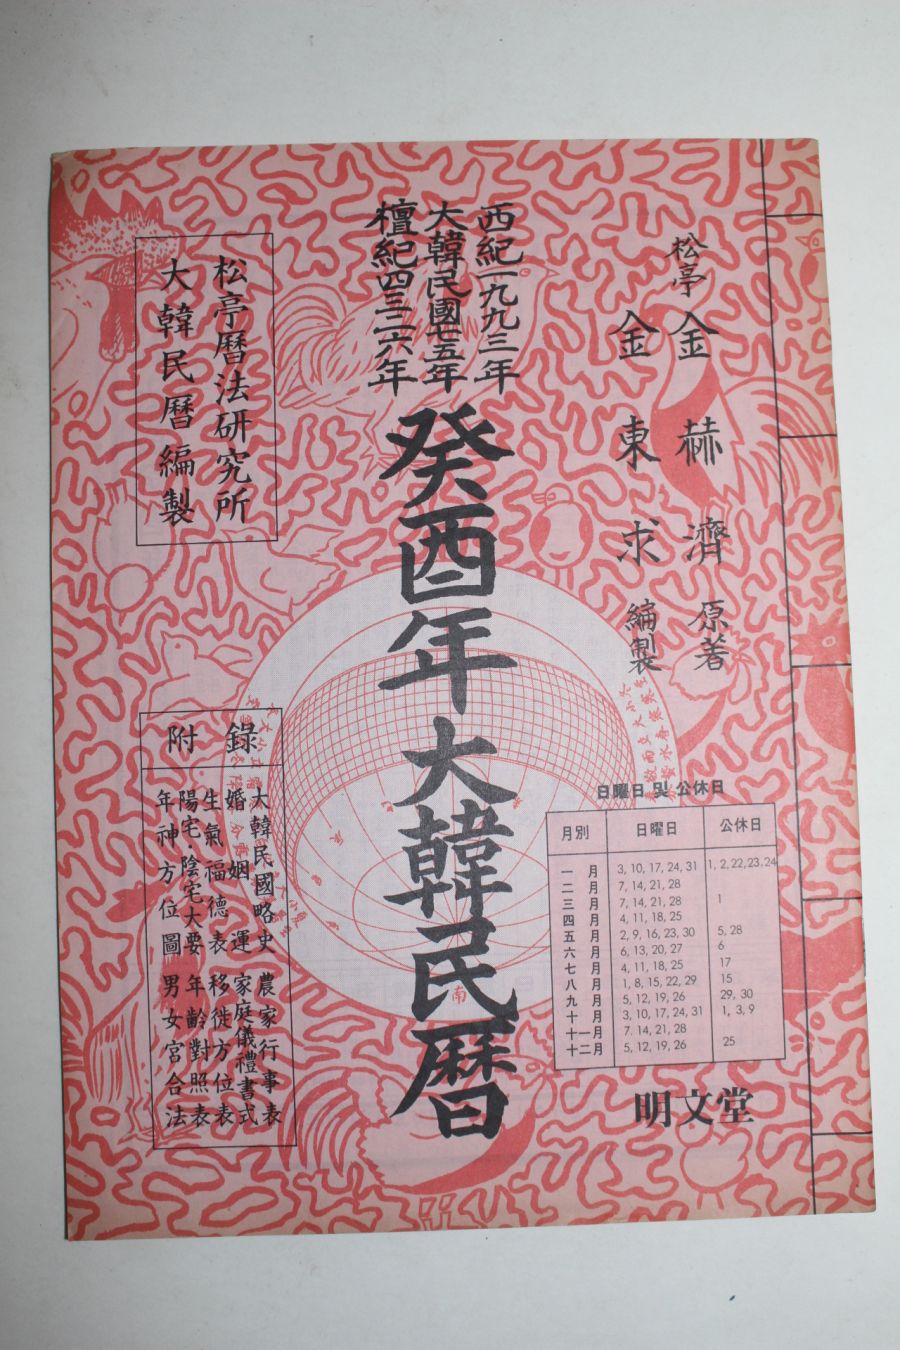 松亭 金赫濟 原著
金東求 編製
西紀一九九三年
大韓民國七五年
檀紀四三二六年
癸酉年大韓民曆
松亭曆法研究所
大韓民曆編製
附錄
大韓民國略史 農家行事表
婚姻運 家庭儀禮書式
生氣福德表 移徙方位表
陽宅·陰宅大要 年齡對照表
年神方位圖 男女宮合法
日曜日 및 公休日
月別 日曜日 公休日
一月 3, 10, 17, 24, 31 1, 2, 22, 23, 24
二月 7, 14, 21, 28
三月 7, 14, 21, 28 1
四月 4, 11, 18, 25
五月 2, 9, 16, 23, 30 5, 28
六月 6, 13, 20, 27 6
七月 4, 11, 18, 25 17
八月 1, 8, 15, 22, 29 15
九月 5, 12, 19, 26 29, 30
十月 3, 10, 17, 24, 31 1, 3, 9
十一月 7, 14, 21, 28
十二月 5, 12, 19, 26 25
南
明文堂